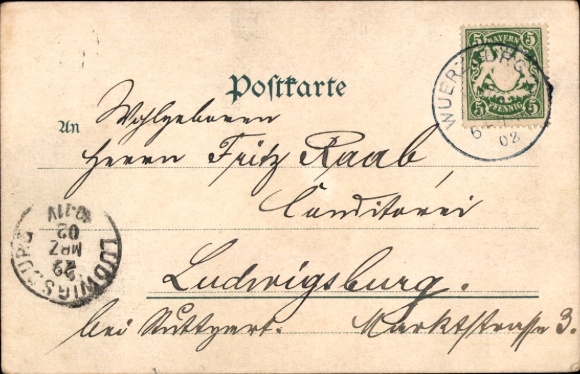 5 BAYERN 5
5 PFENNIG 5
WUERZBURG
02
Postkarte
An Wohlgeboren
Herrn Fritz Raab,
Conditorei
Ludwigsburg.
bei Stuttgart. Marktstrasse 3.
LUDWIGSBURG
22
MRZ
02